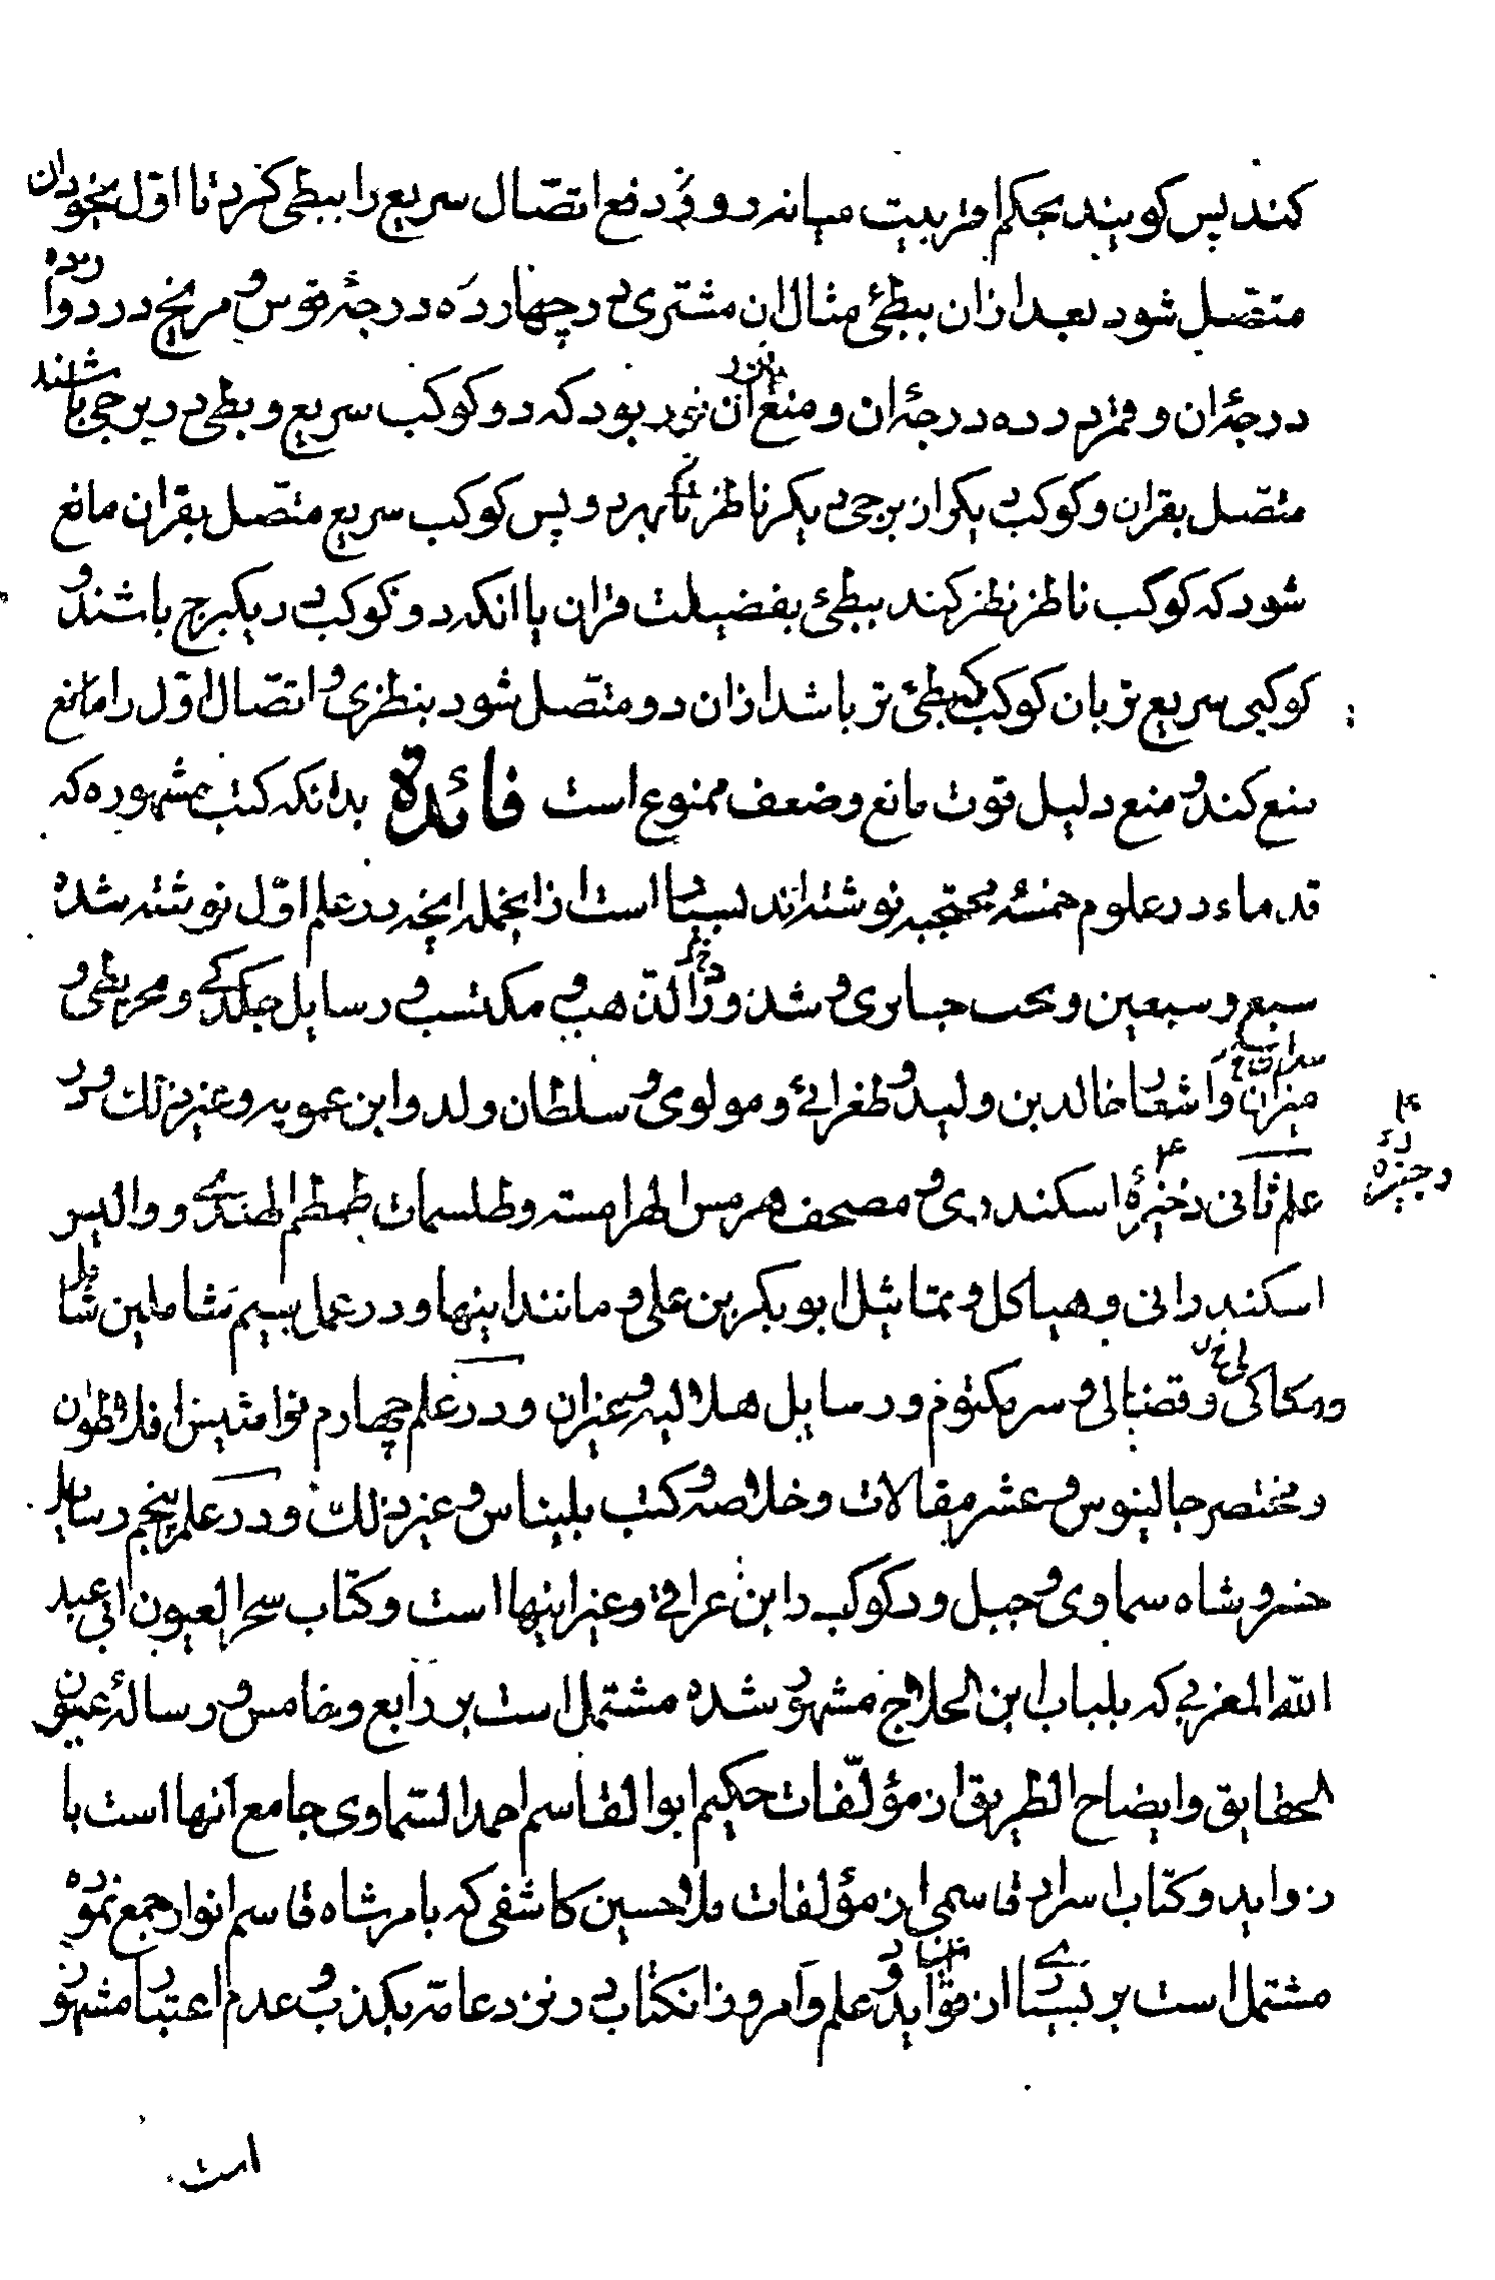 کند پس کویند بحکم اقربیت میانه دو قمر دفع اتصّال سریع را ببطی کرد تا اوّل بخودان
متصل شود بعد ازان ببطیٔ مثال ان مشتری در چهارده درجهٔ قوس و مریخ در دوازده
درجهٔ ان و قمر در ده درجهٔ ان و منع آن بود که دو کوکب سریع و بطی در برجی باشند
متصّل بقران و کوکب دیکر از برجی دیکر ناظر بهر دو پس کوکب سریع متصّل بقران مانع
شود که کوکب ناظر نظر کند ببطیٔ بفضیلت قران یا انکه دو کوکب در یکبرج باشند و
کوکبی سریع تر بان کوکب که بطیٔ تر باشد ازان دو متصّل شود بنظری و اتصّال اوّل را مانع
منع کند و منع دلیل قوت مانع و ضعف ممنوع است فائدة بدانکه کتب مشهوره که
قدماء در علوم خمسهٔ محتجبه نوشته اند بسیار است ازانجمله انچه در علم اوّل نوشته شده
سبع و سبعین و جابری و شذور الذهب و مکتسب و رسایل جلدکی و مجریطی و
میزان و اشعار خالد بن ولید و طغرائی و مولوی و سلطان ولد و ابن عمویه و غیر ذلک و در
علم ثانی ذخیرهٔ اسکندری و مصحف هرمس الهرامسه و طلسمات طمطم الهندی و والیس
وجیزه
اسکندرانی و هیاکل و تماثیل ابو بکر بن علی و مانند اینها و در علم سیم شامل
و سر مکتوم و رسایل هلالیه و غیران و در علم چهارم نوامیس افلاطون
و مختصر جالینوس و عشر مقالات و خلاصه و کتب بلیناس و غیر ذلک و در علم پنجم رسایل
خسرو شاه سماوی و جبل و ابن عراقی و غیر اینها است و کتاب سحر العیون ابی عبد
الله المغربی که بلباب ابن الحلاج مشهور شده مشتمل است بر رابع و خامس و رسالهٔ عیون
الحقایق و ایضاح الطریق از مؤلّفات حکیم ابو القاسم احمد السّماوی جامع آنها است با
زواید و کتاب اسرار قاسمی از مؤلفات ملا حسین کاشفی که بامر شاه قاسم انوار جمع نموده
مشتمل است بر بسیاری از فواید و علم و امروز انکتاب در نزد عامّه بکذب و عدم اعتبار مشهور
است